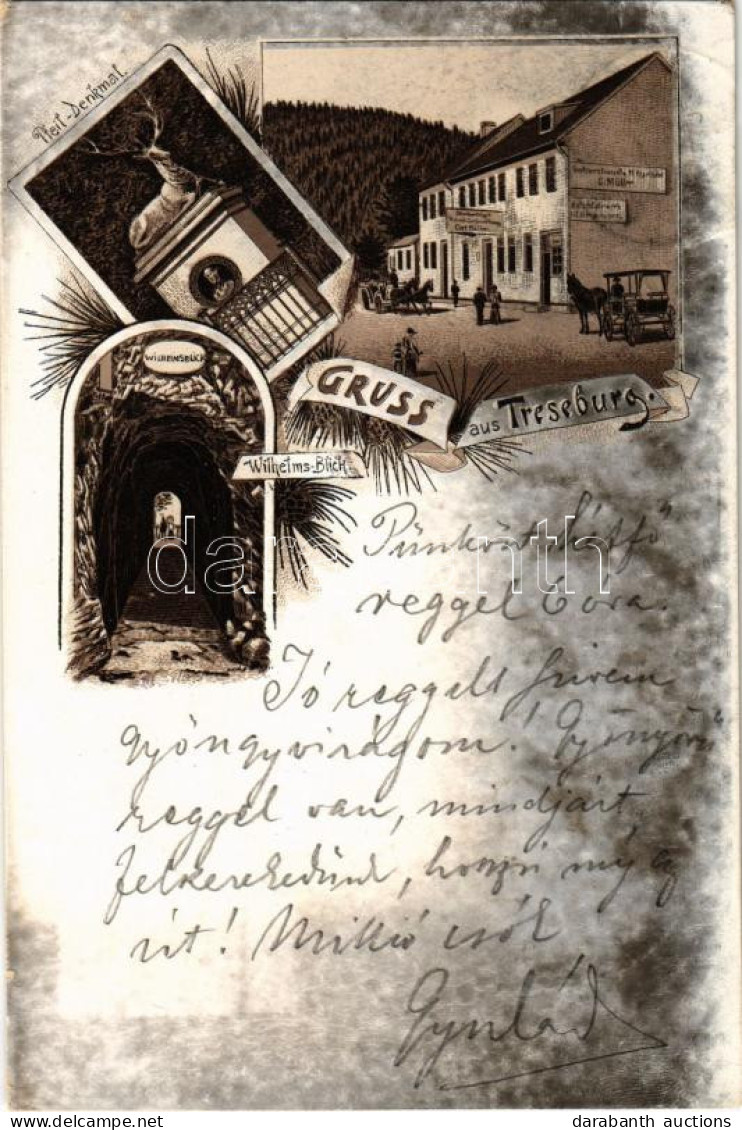 Pfeil-Denkmal.
C. Müller
WILHELMSBLICK
GRUSS
aus Treseburg.
Wilhelms-Blick.
darabanth
Pünköst hétfő
reggel 6 óra.
Jó reggelt szivem
gyöngyvirágom! Gyönyörü
reggel van, mindjárt
felkerekedünk, hosszú még az
út! Millió csók
Gyulád
delcampe.net
darabanth auctions